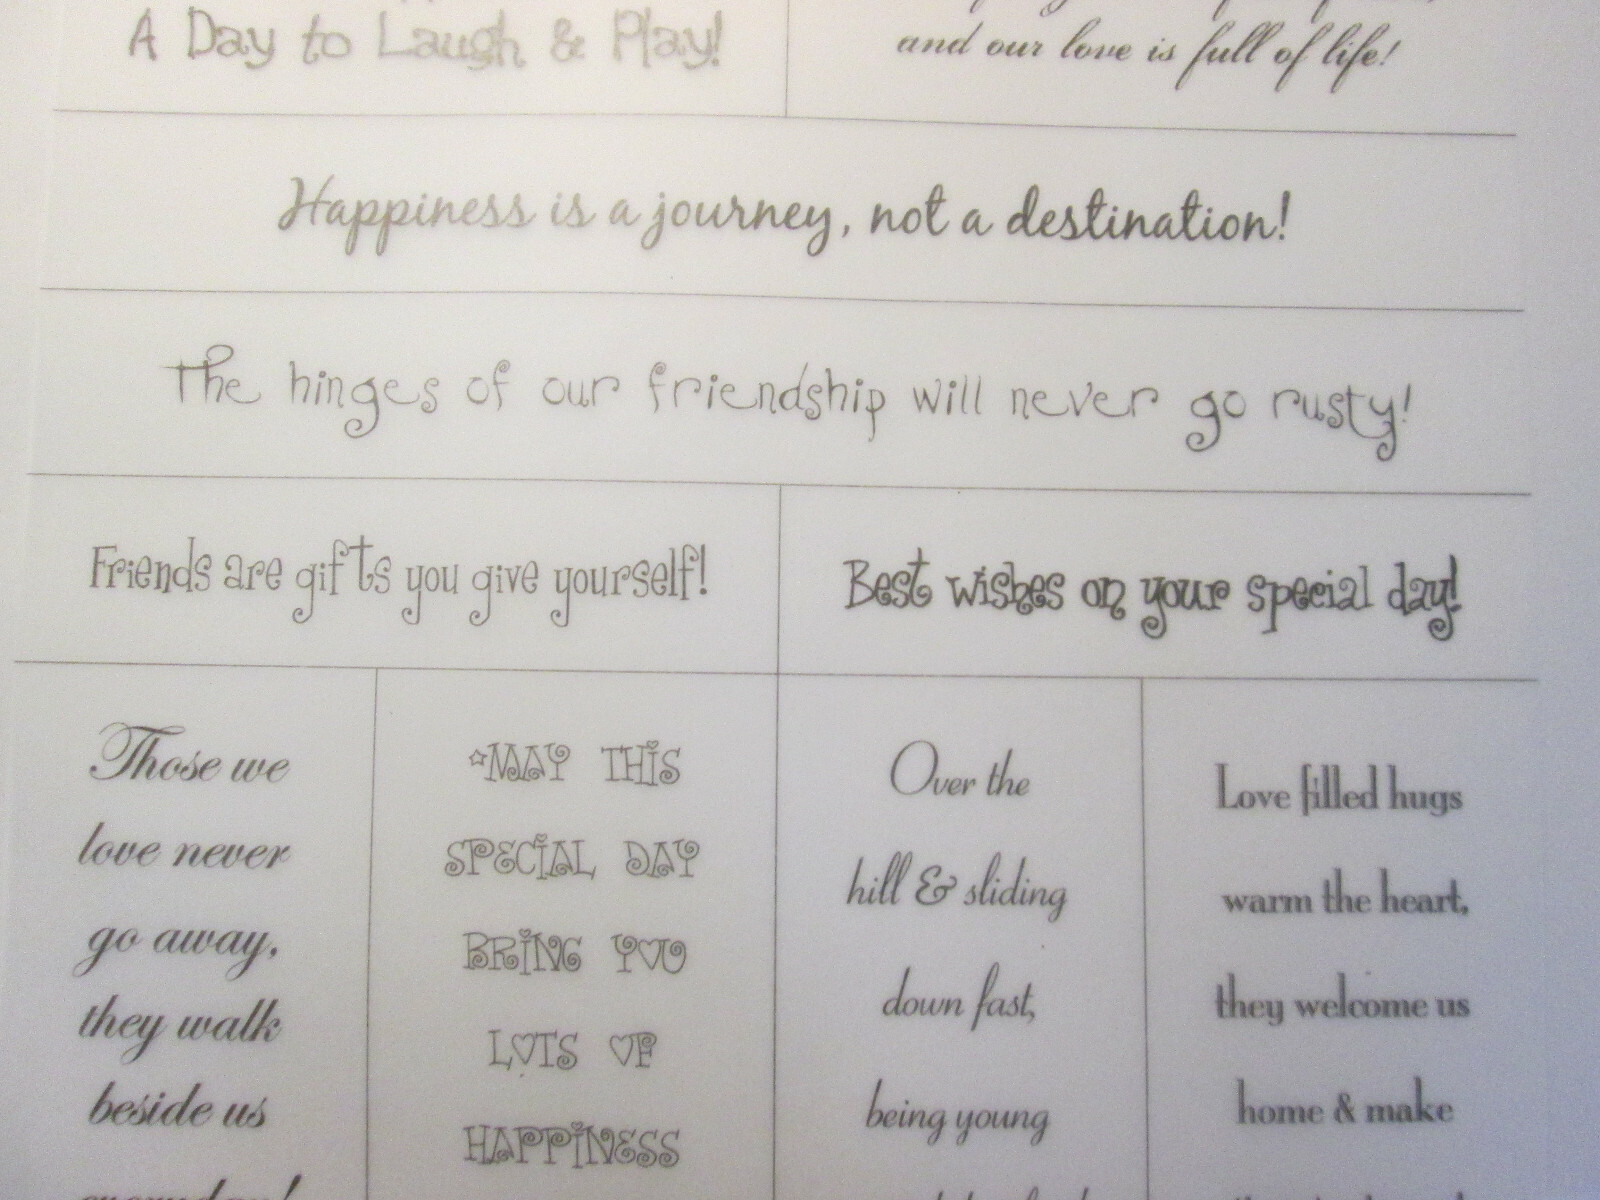 A Day to Laugh & Play!
and our love is full of life!
Happiness is a journey, not a destination!
The hinges of our friendship will never go rusty!
Friends are gifts you give yourself!
Best wishes on your special day!
Those we
love never
go away,
they walk
beside us
MAY THIS
SPECIAL DAY
BRING YOU
LOTS OF
HAPPINESS
Over the
hill & sliding
down fast,
being young
Love filled hugs
warm the heart,
they welcome us
home & make